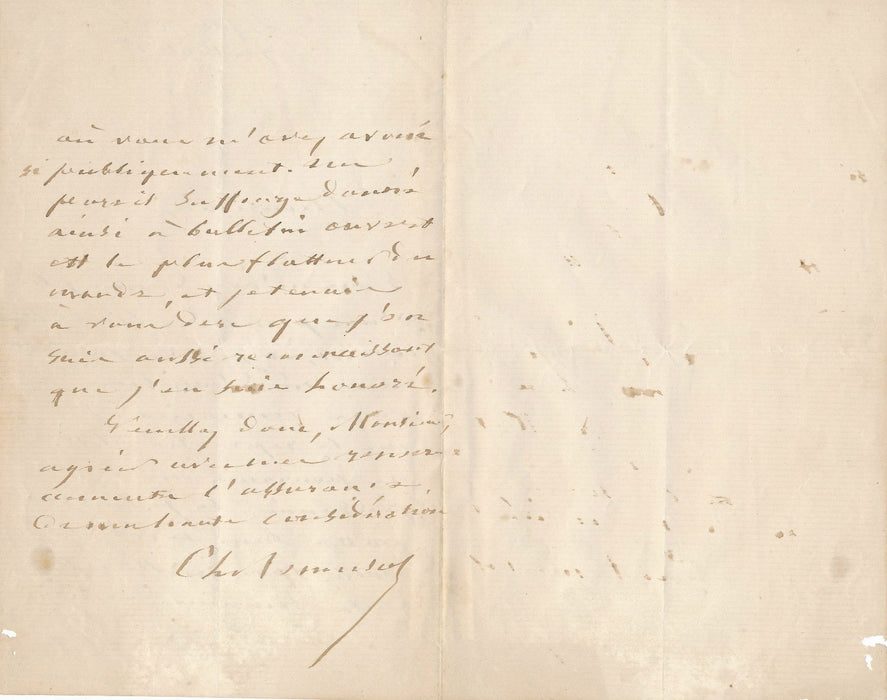 où vous m'avez avoué
si publiquement. Un
pareil suffrage donné
ainsi à bulletin ouvert
est le plus flatteur du
monde, et je tenais
à vous dire que j'en
suis aussi reconnaissant
que j'en suis honoré.
Veuillez donc, Monsieur,
agréer avec mes remer-
ciements l'assurance
de ma haute considération
Ch.